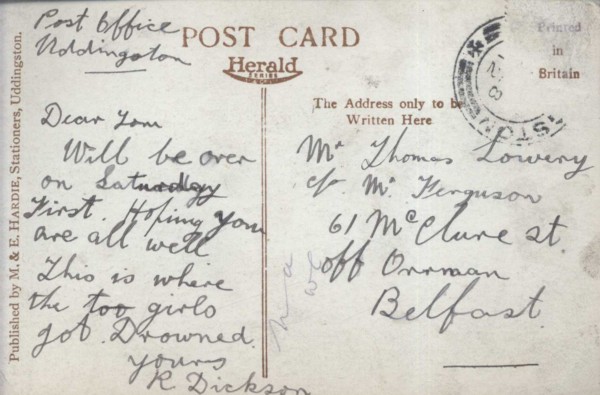 Post Office
Uddingston
POST CARD
Herald
SERIES
Printed
in
Britain
Published by M. & E. HARDIE, Stationers, Uddingston.
Dear Tom
Will be over
on Saturday
First. Hoping you
are all well
This is where
the too girls
got Drowned.
yours
R. Dickson
The Address only to be
Written Here
Mr Thomas Lowery
c/o Mr. Ferguson
61 McClure st.
off Orrman
Belfast.